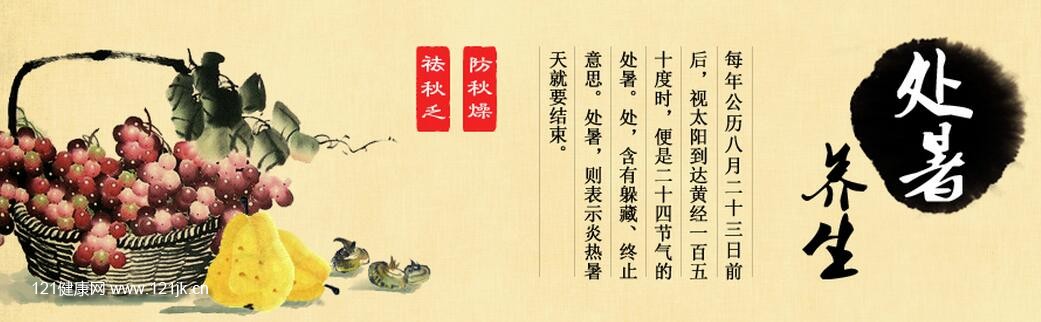 处暑
养生
每年公历八月二十三日前
后，视太阳到达黄经一百五
十度时，便是二十四节气的
处暑。处，含有躲藏、终止
意思。处暑，则表示炎热暑
天就要结束。
防秋燥
祛秋乏
121健康网 www.121jk.cn